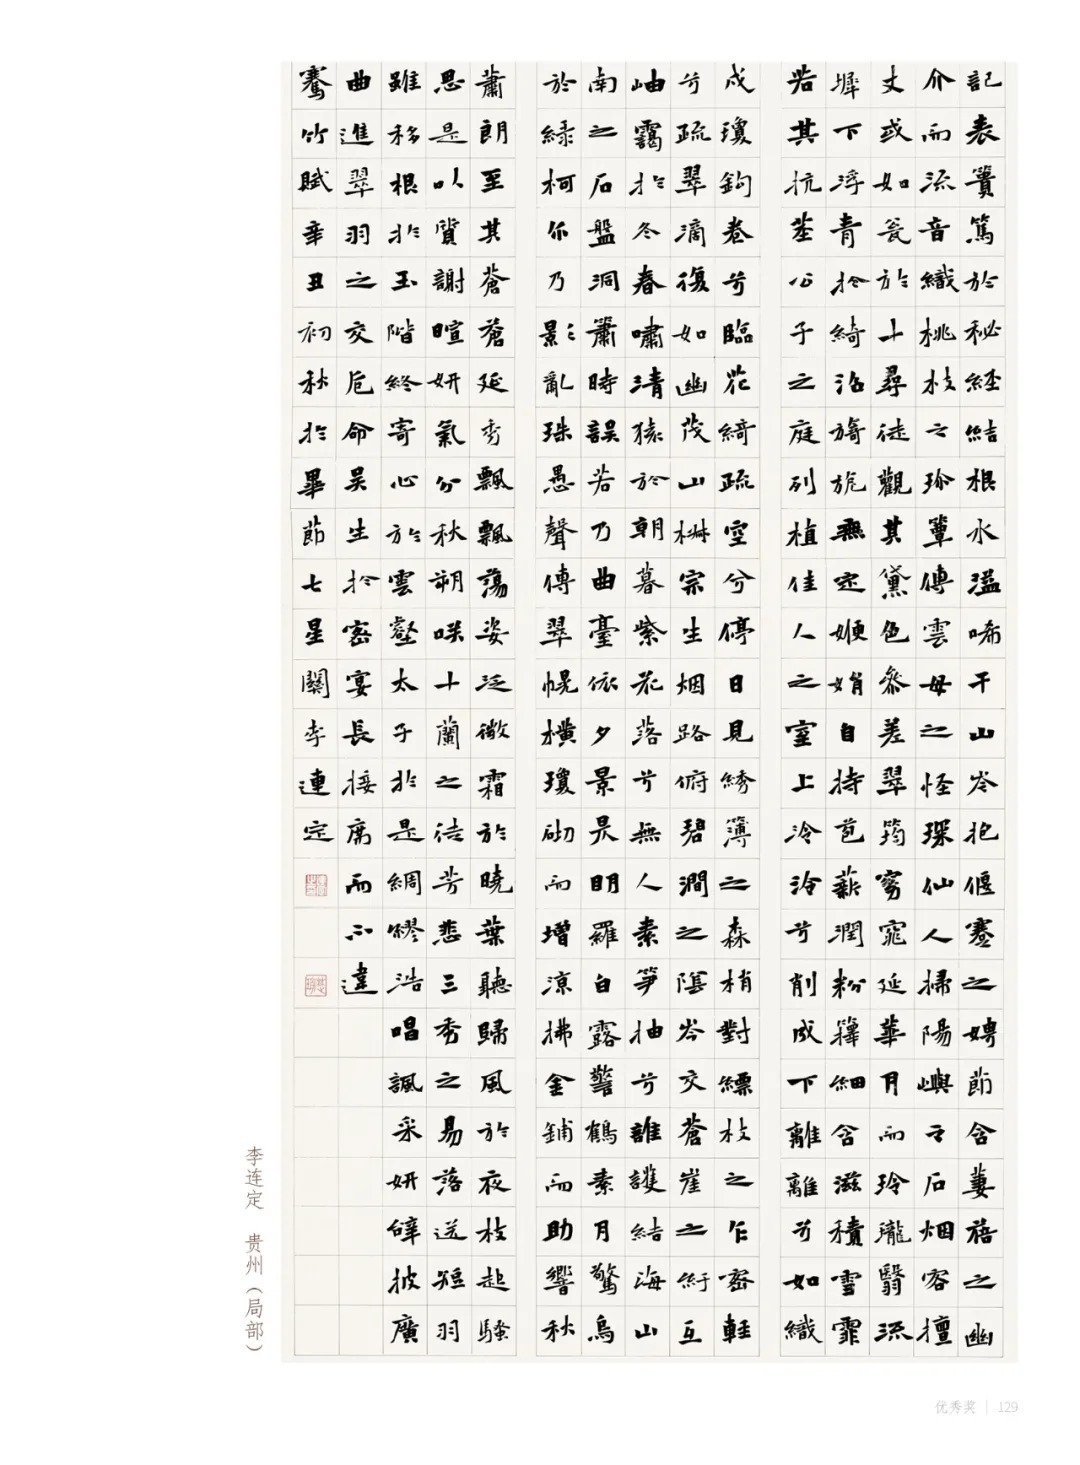 記表簣篤於秘經結根水溢唏干山岺抱偃蹇之娉節含萋蓓之幽
介而流音織桃枝之珎簞傳雲母之怪琛仙人掃陽嶼之石烟容擅
丈或如瓮於十尋徒觀其黛色參差翠筠窈窕延華月而玲瓏翳流
墀下浮青於綺沼旖旎無定㛹娟自持苞薪潤粉籜細含滋積雪霏
若其抗莖公子之庭列植佳人之室上泠泠兮削成下離離兮如織
戍瓊鈎卷兮臨花綺疏空兮停日見綉簿之森梢對縹枝之乍密輕
兮疏翠滴復如幽茂山楙宗生烟路俯碧澗之陰岑交蒼崖之紆互
岫靄於冬春嘯清猿於朝暮紫花落兮無人素笋抽兮誰護結海山
南之石盤洞簫時誤若乃曲臺依夕景昃明羅白露警鶴素月驚烏
於緑柯尓乃影亂珠愚聲傳翠幌橫瓊砌而增凉拂金鋪而助響秋
蕭朗至其蒼蒼延秀飄飄蕩姿泛微霜於曉葉聽歸風於夜枝起騷
思是以質謝暄妍氣分秋朔咲十蘭之徒芳悲三秀之易落送短羽
雖移根於玉階終寄心於雲壑太子於是綢繆浩唱諷采妍辭披廣
曲進翠羽之交卮命吴生於密宴長接席而不違
騫竹賦辛丑初秋於畢節七星關李連定
李连定 贵州（局部）
优秀奖 | 129